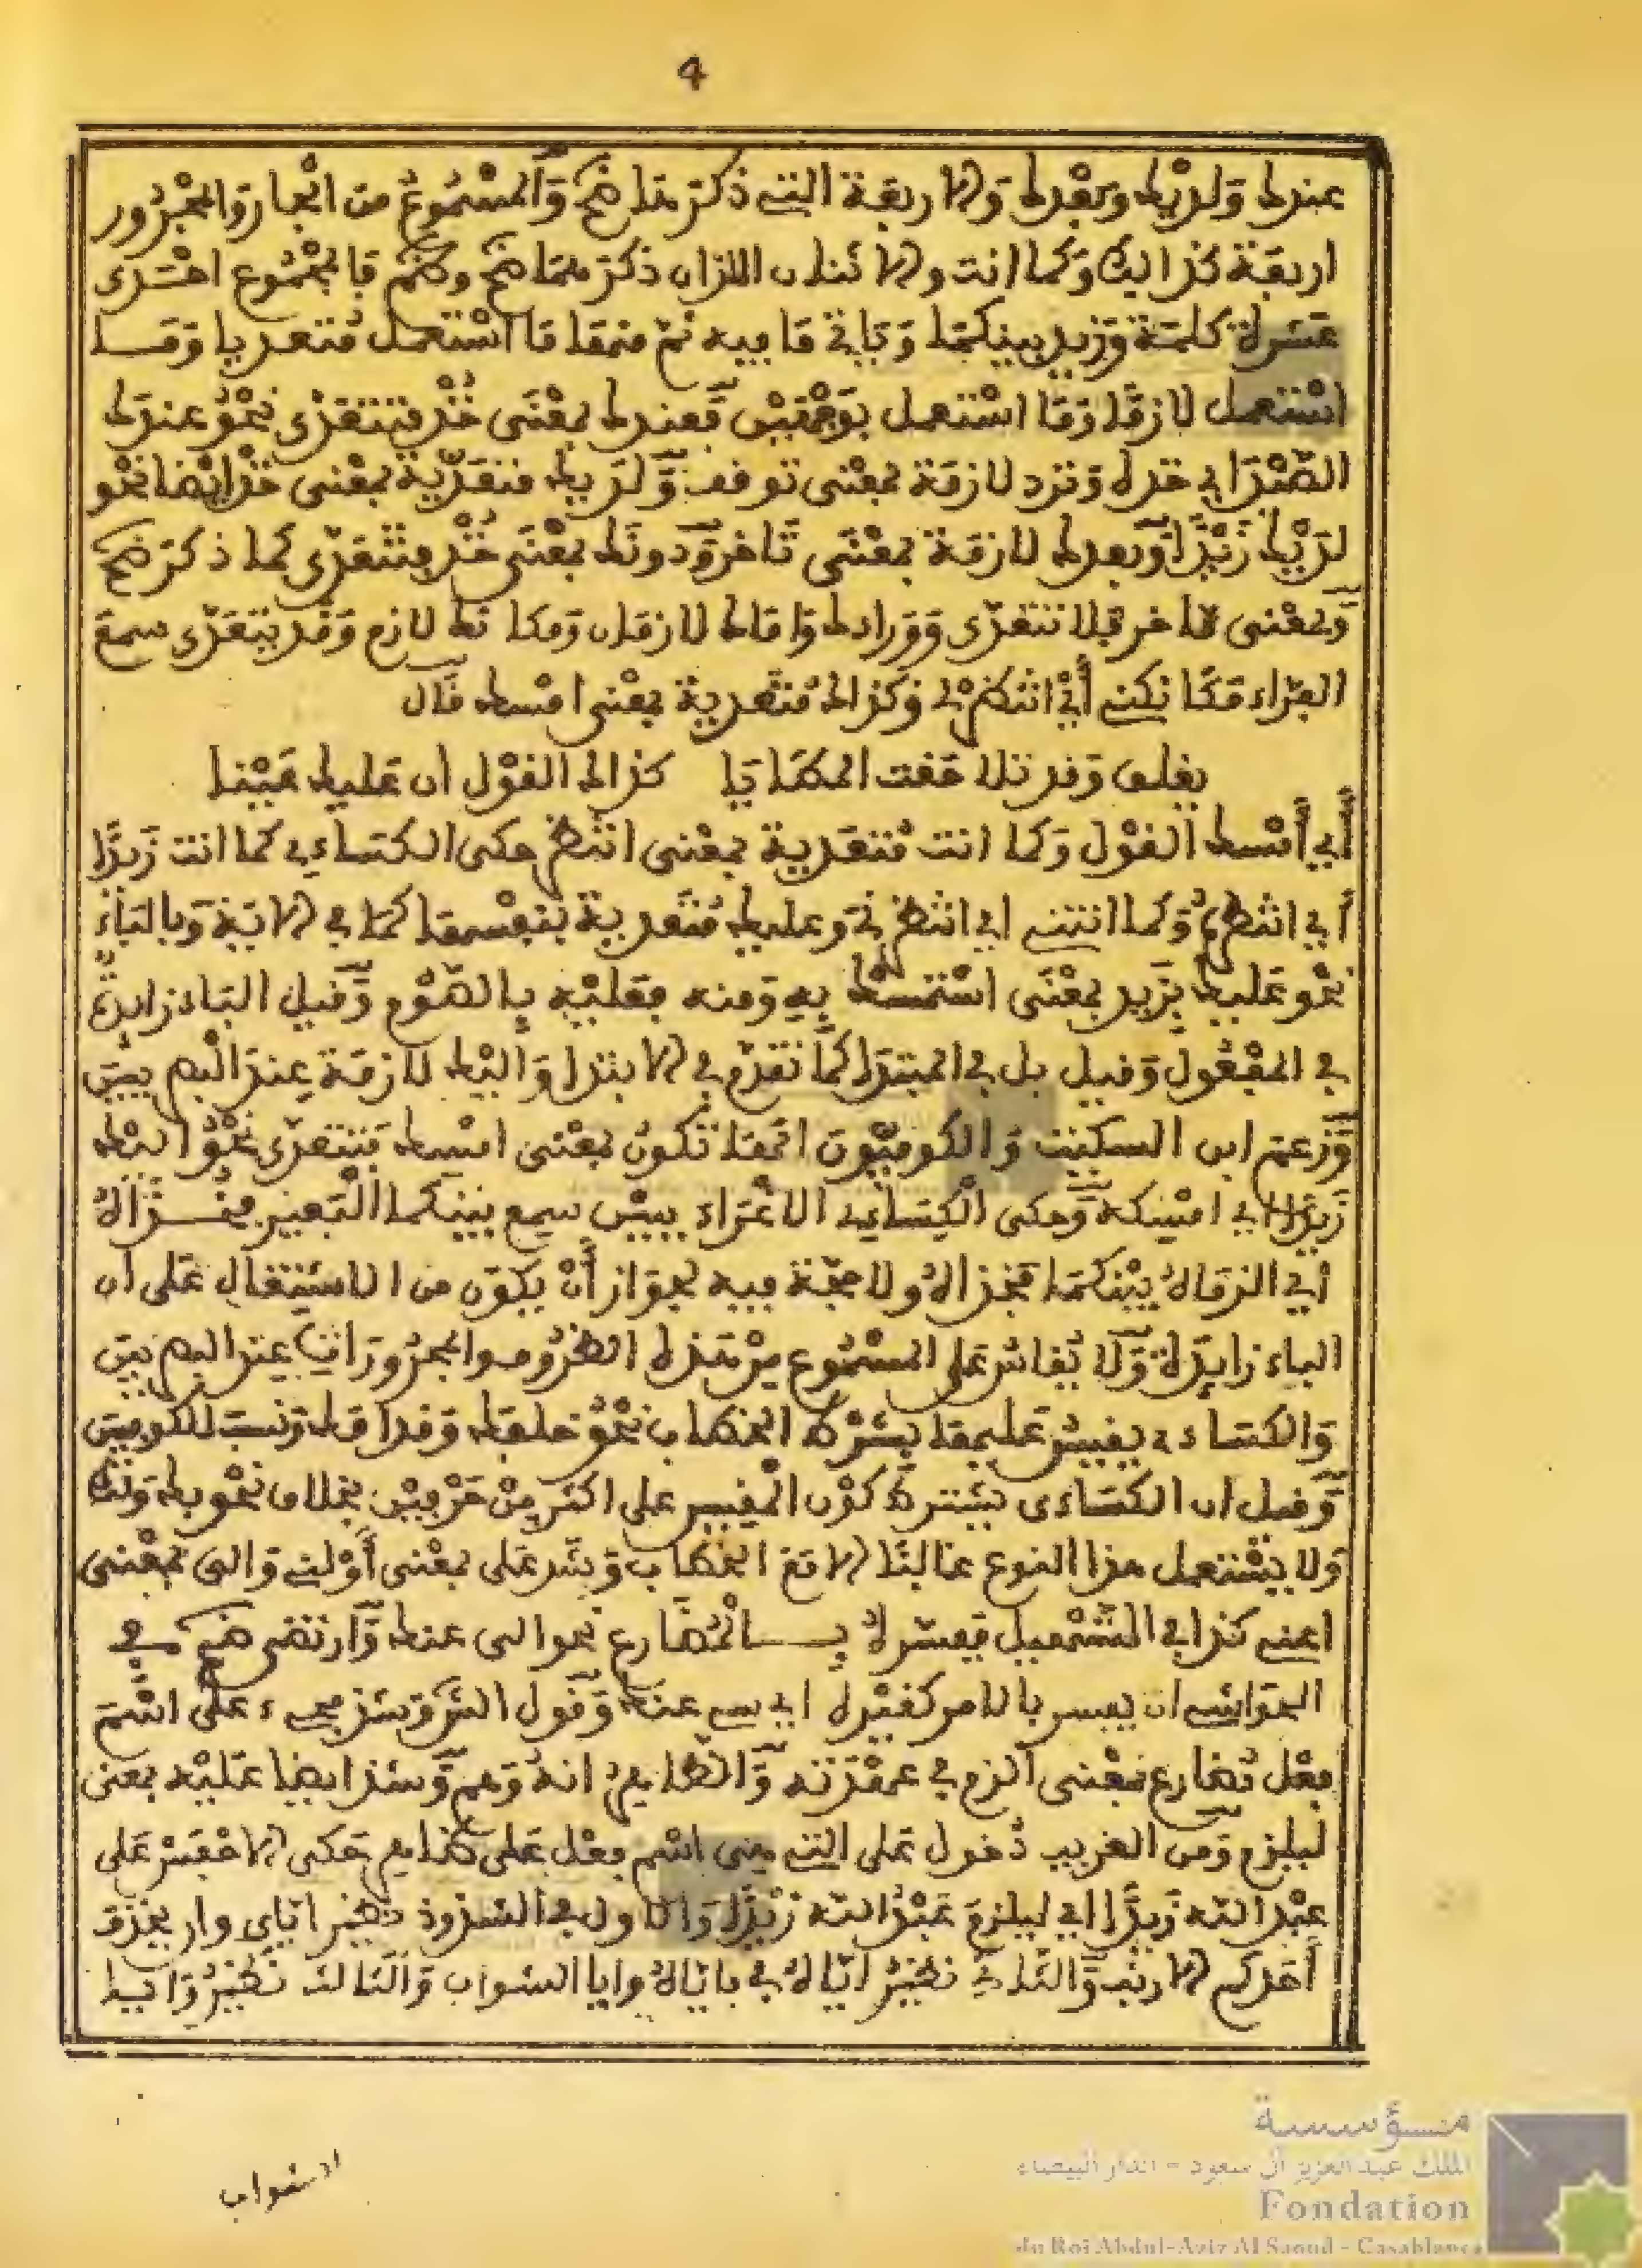 4
عندك ولديك وبعدك والاربعة التي ذكرها ضم والمسموع من الجار والمجرور
اربعة كذاليك وكما انت والاثنان اللذان ذكرهما ضم فالمجموع احدى
عشرة كلمة وزيد بينكما وياتي ما فيه ثم منها ما استعمل متعديا وما
استعمل لازما وما استعمل بوجهين فعندك بمعنى خذ فتتعدى نحو عندك
الصدر اي خذه وترد لازمة بمعنى توقف ولديك متعدية بمعنى خذ ايضا نحو
لديك زيدا وبعدك لازمة بمعنى تاخر ودونك بمعنى خذ فتتعدى كما ذكر ضم
وبمعنى تاخر فلا تتعدى ووراءك وامامك لازمان ومكانك لازم وقد يتعدى سمع
الفراء مكانكني أي انتظرني وكذاك متعدية بمعنى امسك قال
يقلن وقد تلاحقت المطايا كذاك القول ان عليك عينا
أي أمسك القول وكما انت متعدية بمعنى انتظر حكى الكساءي كما انت زيدا
أي انتظره وكما انتني اي انتظرني وعليك متعدية بنفسها كما في الاية وبالباء
نحو عليك بزيد بمعنى استمسك به ومنه فعليه بالصوم وقيل الباء زايدة
في المفعول وقيل بل في المبتدا كما تقدم في الابتدا واليك لازمة عند البصريين
وزعم ابن السكيت والكوفيون انها تكون بمعنى امسك فتتعدى نحو اليك
زيدا اي امسكه وحكى الكساءي الاغراء ببين سمع بينكما البعير فخذاه
أي الزماه بينكما فخذاه ولا حجة فيه لجواز أن يكون من الاشتغال على ان
الباء زايدة ولا يقاس على المسموع من هذه الظروف والمجرورات عند البصريين
والكساءي يقيس عليها بشرط الخطاب نحو خلفك وقدامك ونسب للكوفيين
وقيل ان الكساءى يشترط كون المقيس على اكثر من حرفين بخلاف نحو بك ولك
ولا يستعمل هذا النوع غالبا الا مع الخطاب وشذ على بمعنى أولني والي بمعنى
اعني كذا في التسهيل ففسره بالمضارع نحو الى عنك وارتضى ضم في
الحواشي ان يفسر بالامر كغيره اي عنه وقول وشذ على اسم
فعل مضارع بمعنى الزم في والظاهر انه وهم وشذ ايضا عليه بمعنى
ليلزم ومن الغريب دخول على التي هي اسم فعل على حكى الاخفش على
عبد الله زيدا اي ليلزم عبد الله زيدا والاول في الشذوذ نظير اياي وان يحذف
أحدكم الارنب والثاني نظير اياه في باياه وايا الشواب والثالث نظير
الشواب
مؤسسة
الملك عبد العزيز آل سعود - الدار البيضاء
Fondation
du Roi Abdul-Aziz Al Saoud - Casablanca